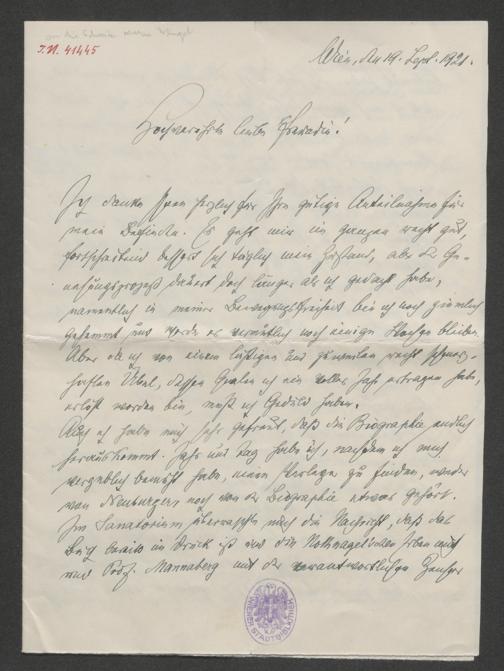 an die Schwester meiner
J.N. 41445
Wien, den 19. Sept. 1921.
Hochverehrte liebe Freundin!
Ich danke Ihnen herzlich für Ihre gütige Anteilnahme für
mein Befinden. Es geht mir im ganzen recht gut,
fortschreitend bessert sich täglich mein Zustand, aber der Ge-
nesungsprozeß dauert doch länger als ich gedacht habe,
namentlich in meiner Bewegungsfreiheit bin ich noch ziemlich
gehemmt und werde es vermutlich noch einige Wochen bleiben.
Aber da ich von einem lästigen und zuweilen recht schmerz-
haften Übel, dessen Qualen ich ein volles Jahr ertragen habe,
erlöst worden bin, muß ich Geduld haben.
Auch ich habe mich sehr gefreut, daß die Biographie endlich
herauskommt. Jahr und Tag habe ich, nachdem ich mich
vergeblich bemüht habe, einen Verleger zu finden, weder
von Neuburger, noch von der Biographie etwas gehört.
Im Sanatorium überraschte mich die Nachricht, daß das
Buch bereits im Druck ist und die Nothnagelschen Erben mich
und Prof. Mannaberg mit der verantwortlichen Zensur
WIENER STADTBIBLIOTHEK